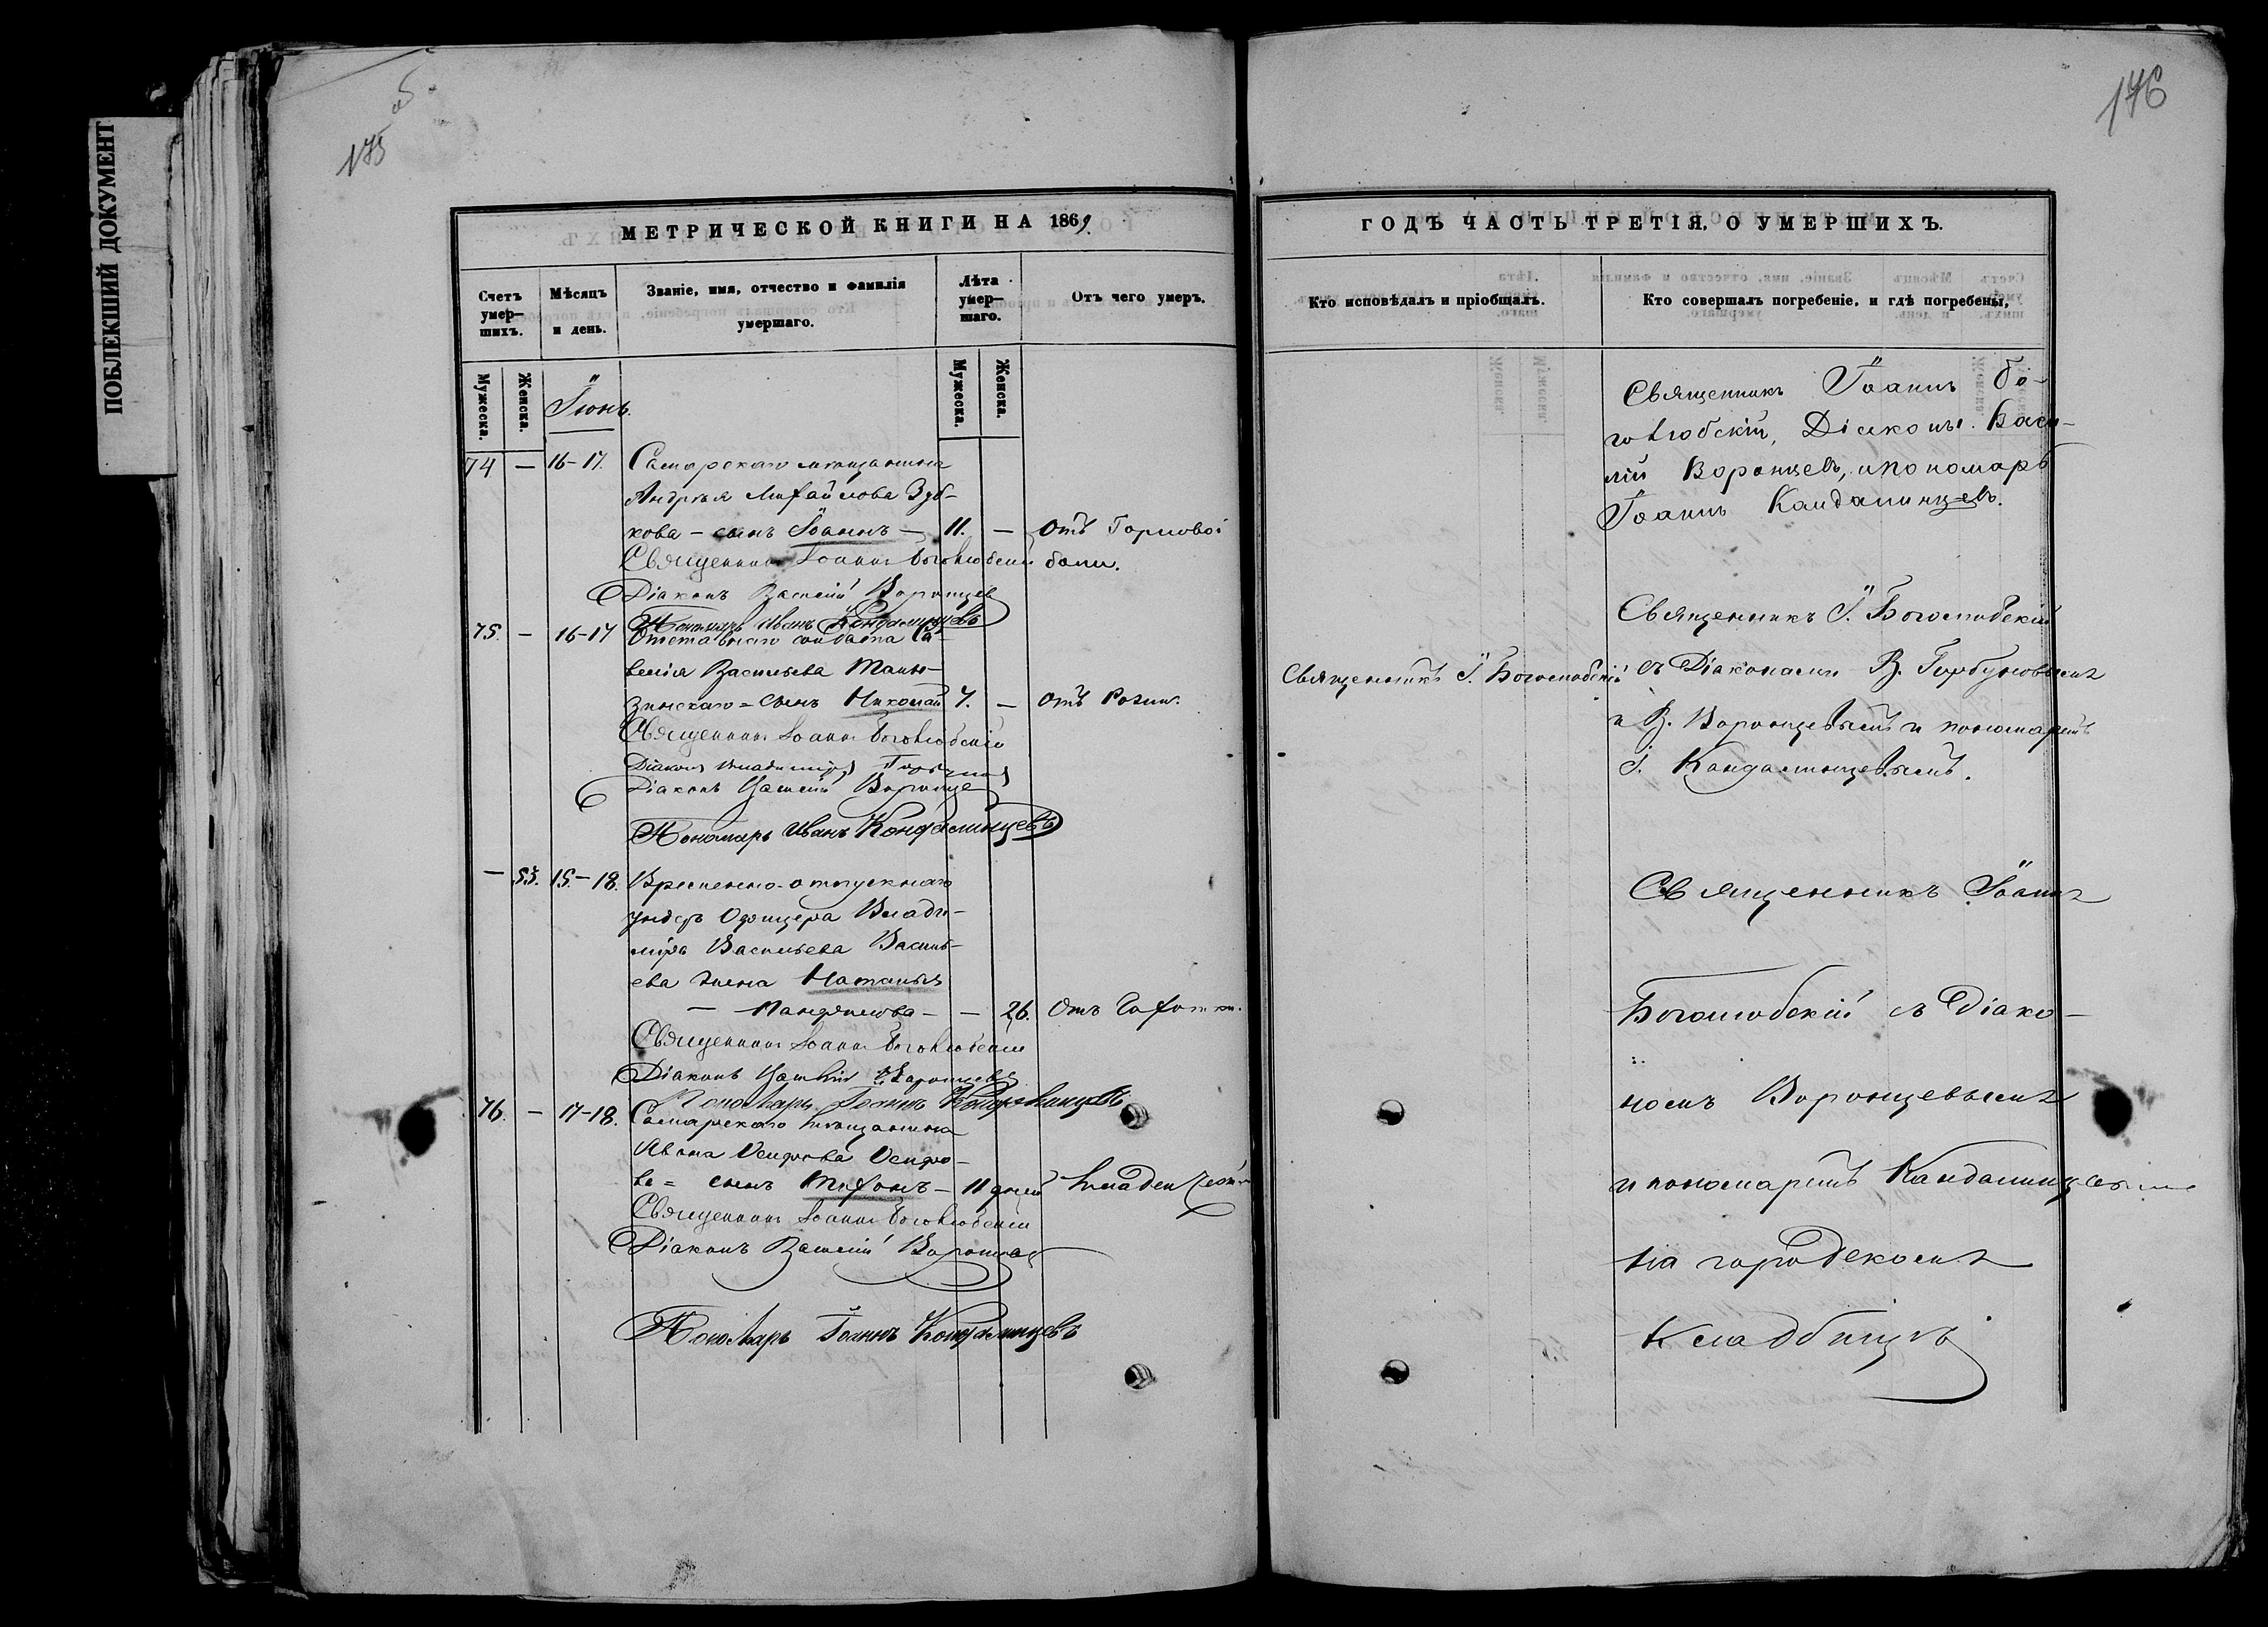 ПОБЛЕКШИЙ ДОКУМЕНТ
175 об.
176
МЕТРИЧЕСКОЙ КНИГИ НА 1869.
Счетъ умер-шихъ.
Мѣсяцъ и день.
Званіе, имя, отчество и фамилія умершаго.
Лѣта умер-шаго.
Отъ чего умеръ.
Мужеска.
Женска.
Іюнь.
Мужеска.
Женска.
74 — 16-17. Самарскаго мѣщанина
Андрея Михайлова Зуб-
кова – сынъ Іоаннъ — 11. — Отъ Горловой
Священникъ Іоаннъ Боголюбскій боли.
Діаконъ Василій Воронцев
Пономарь Иванъ Кандалинцевъ
75. — 16-17 Отставнаго солдата Са-
велія Васильева
сынъ Николай 7. — Отъ Розги.
Священникъ Іоаннъ Боголюбскій
Діаконъ Владиміръ Горбуновъ
Діаконъ Василій Воронцев
Пономарь Иванъ Кандалинцевъ
— 53. 15.-18. Временно-отпускнаго
Ундеръ Офицера Влади-
міра Васильева Василь-
ева жена Наталья
— Панфилова — — 26. Отъ Чахотки.
Священникъ Іоаннъ Боголюбскій
Діаконъ Василій Воронцевъ
Пономарь Іоаннъ Кандалинцевъ
76. — 17-18. Самарскаго мѣщанина
Ивана Осипова Осипо-
ва = сынъ Тихонъ — 11 дней Младенческой
Священникъ Іоаннъ Боголюбскій
Діаконъ Василій Воронцев
Пономарь Іоаннъ Кандалинцевъ
ГОДЪ ЧАСТЬ ТРЕТІЯ, О УМЕРШИХЪ.
Кто исповѣдалъ и пріобщалъ.
Кто совершалъ погребеніе, и гдѣ погребены,
Священникъ Іоаннъ Бо-
голюбскій, Діаконы Васи-
лій Воронцевъ, и пономарь
Іоаннъ Кандалинцевъ.
Священникъ І. Боголюбскій
Священникъ І. Боголюбскій съ Діаконами В. Горбуновымъ
и В. Воронцевымъ и пономаремъ
І. Кандалинцевымъ.
Священникъ Іоаннъ
Боголюбскій съ Діако-
номъ Воронцевымъ
и пономаремъ Кандалинцевымъ
на городскомъ
Кладбищѣ